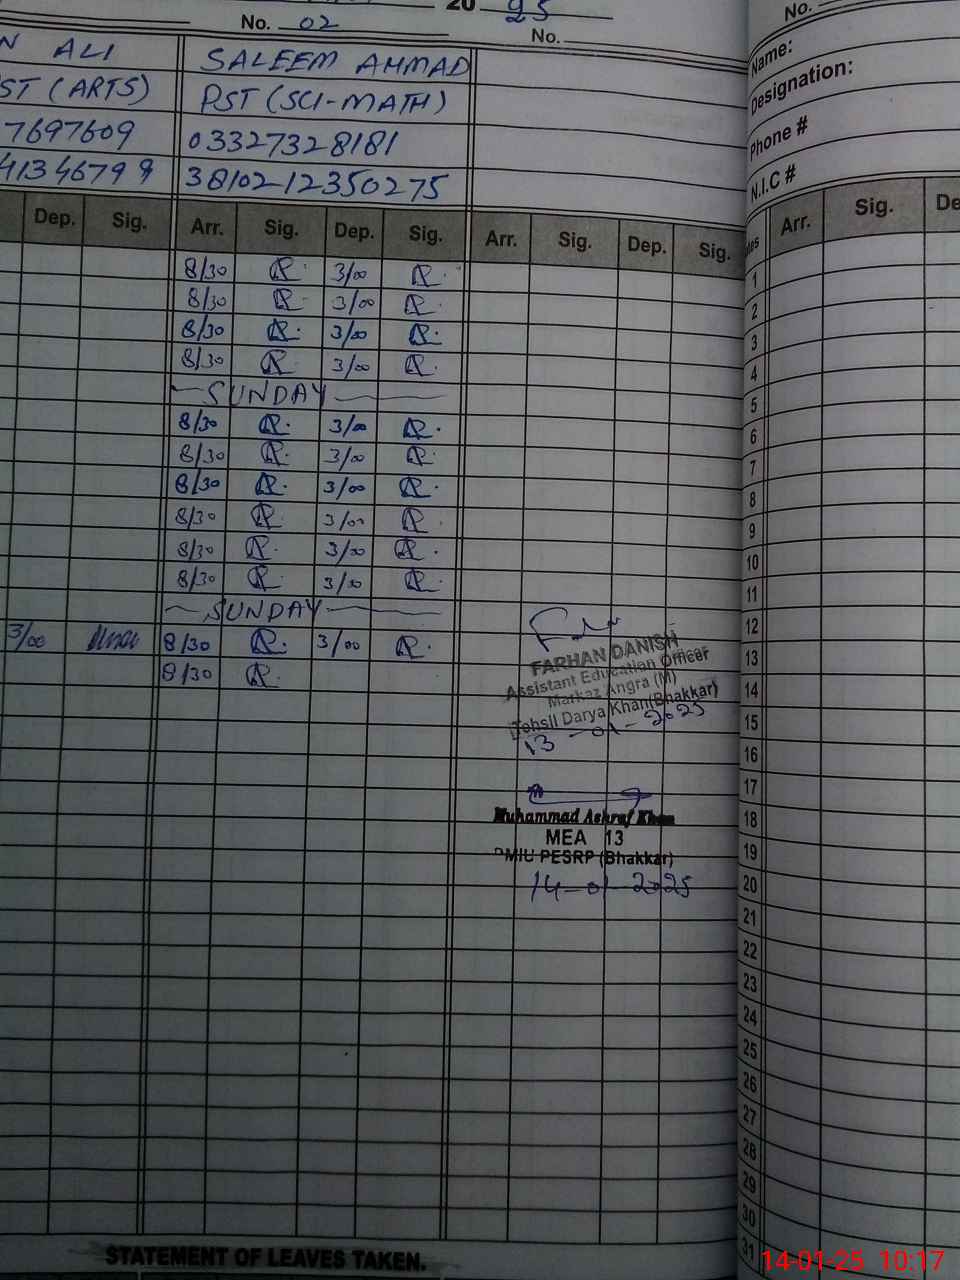 20 25
No. 02
No.
No.
N ALI
SALEEM AHMAD
Name:
ST (ARTS)
PST (SCI-MATH)
Designation:
7697609
03327328181
Phone #
41346799
3810212350275
N.I.C #
Dep. Sig. Arr. Sig. Dep. Sig. Arr. Sig. Dep. Sig. Arr. Sig. De
8/30 3/00 1
8/30 3/00 2
8/30 3/00 3
8/30 3/00 4
SUNDAY 5
8/30 3/00 6
8/30 3/00 7
8/30 3/00 8
8/30 3/00 9
8/30 3/00 10
8/30 3/00 11
SUNDAY 12
3/00 8/30 3/00 13
8/30 14
FARHAN DANISH
Assistant Education Officer
Markaz Angra (M)
Tehsil Darya Khan (Bhakkar)
13-01-2025
15
16
17
Muhammad Ashraf Khan
18
MEA 13
PMIU PESRP (Bhakkar)
19
14-01-2025
20
21
22
23
24
25
26
27
28
29
30
31
STATEMENT OF LEAVES TAKEN.
14-01-25 10:17